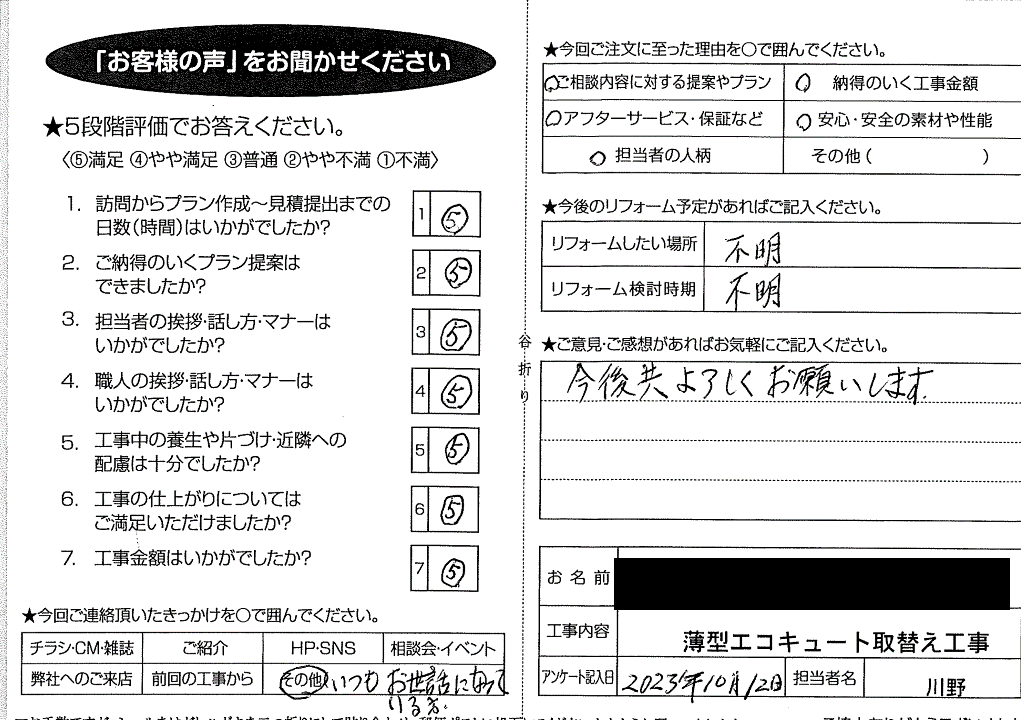 「お客様の声」をお聞かせください
★5段階評価でお答えください。
〈⑤満足 ④やや満足 ③普通 ②やや不満 ①不満〉
1. 訪問からプラン作成～見積提出までの
日数(時間)はいかがでしたか?
1 ⑤
2. ご納得のいくプラン提案は
できましたか?
2 ⑤
3. 担当者の挨拶・話し方・マナーは
いかがでしたか?
3 ⑤
4. 職人の挨拶・話し方・マナーは
いかがでしたか?
4 ⑤
5. 工事中の養生や片づけ・近隣への
配慮は十分でしたか?
5 ⑤
6. 工事の仕上がりについては
ご満足いただけましたか?
6 ⑤
7. 工事金額はいかがでしたか?
7 ⑤
★今回ご連絡頂いたきっかけを〇で囲んでください。
チラシ・CM・雑誌 ご紹介 HP・SNS 相談会・イベント
弊社へのご来店 前回の工事から その他 いつも お世話になって
いる為.
谷折り
★今回ご注文に至った理由を〇で囲んでください。
〇ご相談内容に対する提案やプラン 〇 納得のいく工事金額
〇アフターサービス・保証など 〇 安心・安全の素材や性能
〇 担当者の人柄 その他( )
★今後のリフォーム予定があればご記入ください。
リフォームしたい場所 不明
リフォーム検討時期 不明
★ご意見・ご感想があればお気軽にご記入ください。
今後共よろしくお願いします.
お名前
工事内容 薄型エコキュート取替え工事
アンケート記入日 2023年10月12日 担当者名 川野